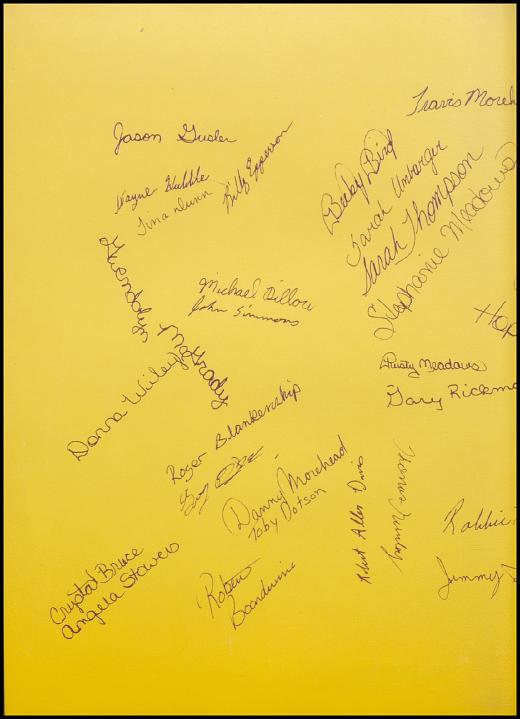 Travis Moreh
Jason Gusler
Wayne Hubble
Tina Dunn
Billy Epperson
Becky Bird
Sarah Umbarger
Sarah Thompson
Stephanie Meadows
Gwendolyn McGrady
Michael Dillow
John Simmons
Hop
Donna Wiley
Dusty Meadows
Gary Rickm
Roger Blankenship
Danny Morehead
Toby Dotson
Robert Allen Davis
Thomas
Robbie
Jimmy
Crystal Bruce
Angela Stowers
Robert